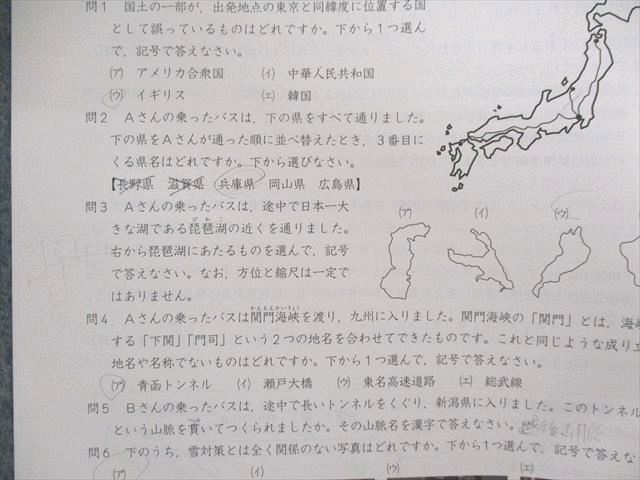 問1 国土の一部が，出発地点の東京と同緯度に位置する国
として誤っているものはどれですか。下から1つ選ん
で，記号で答えなさい。
(ア) アメリカ合衆国 (イ) 中華人民共和国
(ウ) イギリス (エ) 韓国
問2 Aさんの乗ったバスは，下の県をすべて通りました。
下の県をAさんが通った順に並べ替えたとき，3番目に
くる県名はどれですか。下から選びなさい。
【長野県 滋賀県 兵庫県 岡山県 広島県】
問3 Aさんの乗ったバスは，途中で日本一大
きな湖である琵琶湖の近くを通りました。
びわこ
右から琵琶湖にあたるものを選んで，記号
で答えなさい。なお，方位と縮尺は一定で
はありません。
(ア) (イ) (ウ)
かんもんかいきょう
問4 Aさんの乗ったバスは関門海峡を渡り，九州に入りました。関門海峡の「関門」とは，海
する「下関」「門司」という2つの地名を合わせてできたものです。これと同じような成り
地名や名称でないものはどれですか。下から1つ選んで，記号で答えなさい。
(ア) 青函トンネル (イ) 瀬戸大橋 (ウ) 東名高速道路 (エ) 総武線
問5 Bさんの乗ったバスは，途中で長いトンネルをくぐり，新潟県に入りました。このトンネル
という山脈を貫いてつくられましたか。その山脈名を漢字で答えなさい。
問6 下のうち，雪対策とは全く関係のない写真はどれですか。下から1つ選んで，記号で答えな
(ア) (イ) (ウ) (エ)